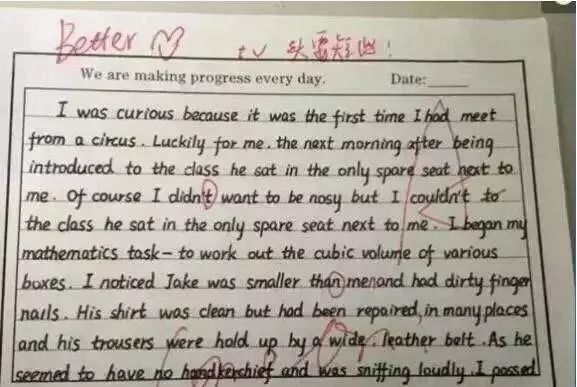 Better
tv 头要短些!
We are making progress every day. Date:
I was curious because it was the first time I had meet
from a circus. Luckily for me. the next morning after being
introduced to the class he sat in the only spare seat next to
me. Of course I didn't want to be nosy but I couldn't to
the class he sat in the only spare seat next to me. I began my
mathematics task - to work out the cubic volume of various
boxes. I noticed Jake was smaller than me and had dirty finger
nails. His shirt was clean but had been repaired, in many places
and his trousers were hold up by a wide. leather belt. As he
seemed to have no handkerchief and was sniffing loudly. I passed